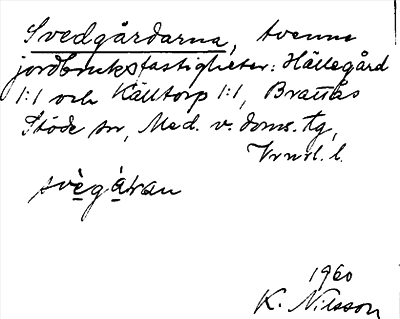 Svedgårdarna, tvenne
jordbruksfastigheter: Hällegård
1:1 och Källtorp 1:1, Brattås
Stöde sn, Med. v. doms. tg,
Vrnrl. l.
svègáran
1960
K. Nilsson